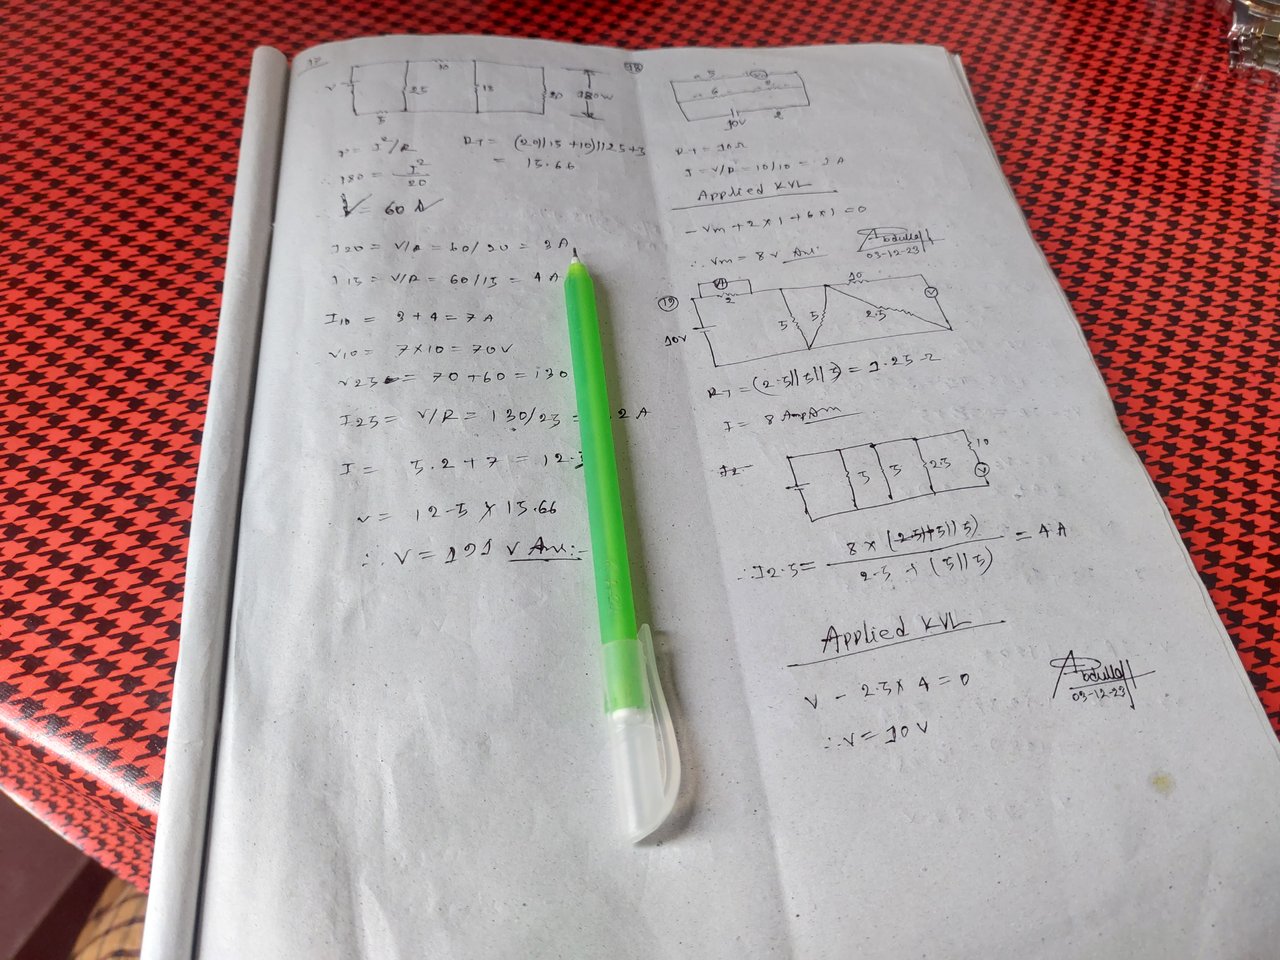 17
V
10
25
15
20
180W
5
P = I²/R
RT = (20||15+10)||25+5
= 15.66
∴ 180 = I²/20
V = 60 V
I20 = V/R = 60/20 = 3A
I15 = V/R = 60/15 = 4A
I10 = 3+4 = 7A
V10 = 7×10 = 70V
V25 = 70+60 = 130
I25 = V/R = 130/25 = .2A
I = 5.2+7 = 12.
V = 12.5 × 15.66
∴ V = 191 V Ans:-
18
6
10V
2
RT = 10Ω
I = V/R = 10/10 = 1A
Applied KVL
- Vm + 2×1 + 6×1 = 0
∴ Vm = 8V Ans:
Abdullah
03-12-23
19
A
2
10
V
5
5
2.5
10V
RT = (2.5||5||5) = 1.25Ω
I = 8 Amp Ans
I2-
5
5
2.5
10
V
∴ I2.5 = 8 × (5||5) / 2.5 + (5||5) = 4A
Applied KVL
V - 2.5×4 = 0
∴ V = 10V
Abdullah
03-12-23